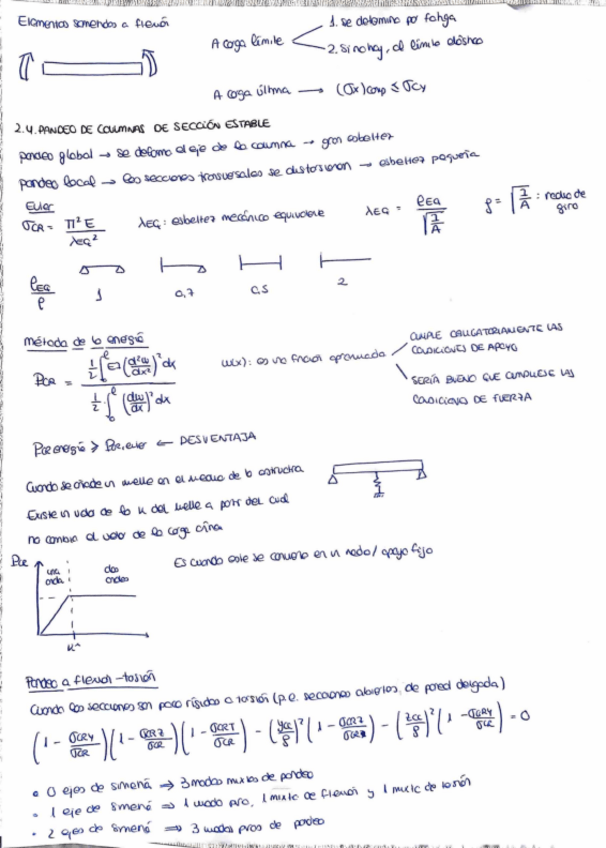 Elementos sometidos a flexión
A carga límite
1. se determina por fatiga
2. Si no hay, al límite elástico
A carga última → (σx)comp ≤ σcy
2.4. PANDEO DE COLUMNAS DE SECCIÓN ESTABLE
pandeo global → se deforma el eje de la columna → gran esbeltez
pandeo local → las secciones transversales se distorsionan → esbeltez pequeña
Euler
σCR = π² E / λEQ²
λEQ: esbeltez mecánica equivalente
λEQ = ℓEQ / √(I/A)
ρ = √(I/A) : radio de giro
ℓEQ / ℓ
1
0,7
0,5
2
método de la energía
PCR = ½ ∫₀^ℓ EI (d²w/dx²)² dx / ½ ∫₀^ℓ (dw/dx)² dx
w(x): es una función aproximada
CUMPLE OBLIGATORIAMENTE LAS
CONDICIONES DE APOYO
SERÍA BUENO QUE CUMPLIESE LAS
CONDICIONES DE FUERZA
PCR energía ≥ PCR, euler ← DESVENTAJA
Cuando se añade un muelle en el medio de la estructura
Existe un valor de la K del muelle a partir del cual
no cambia el valor de la carga crítica
Es cuando este se convierte en un nodo / apoyo fijo
Pcr
una onda
dos ondas
K*
Pandeo a flexión-torsión
Cuando las secciones son poco rígidas a torsión (p.e. secciones abiertas, de pared delgada)
(1 - σCRY/σCR)(1 - σCRZ/σCR)(1 - σCRT/σCR) - (ycc/ρ)² (1 - σCRZ/σCR) - (zcc/ρ)² (1 - σCRY/σCR) = 0
• 0 ejes de simetría ⇒ 3 modos mixtos de pandeo
• 1 eje de simetría ⇒ 1 modo puro, 1 mixto de flexión y 1 mixto de torsión
• 2 ejes de simetría ⇒ 3 modos puros de pandeo